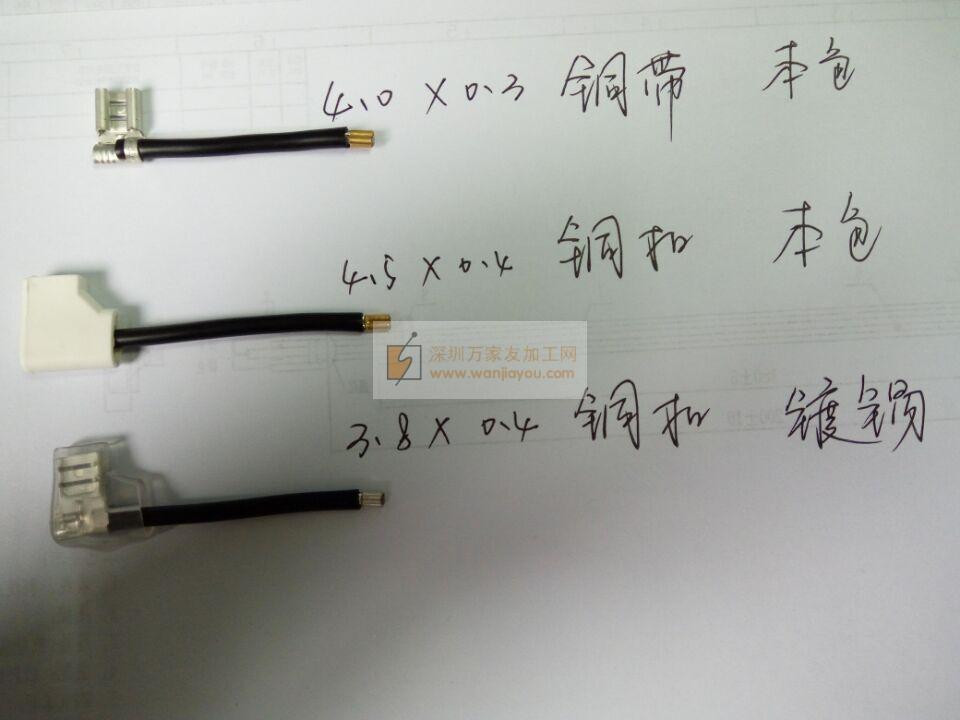 4.0 X 0.3 铜带 本色
4.5 X 0.4 铜扣 本色
深圳万家友加工网
www.wanjiayou.com
3.8 X 0.4 铜扣 镀锡